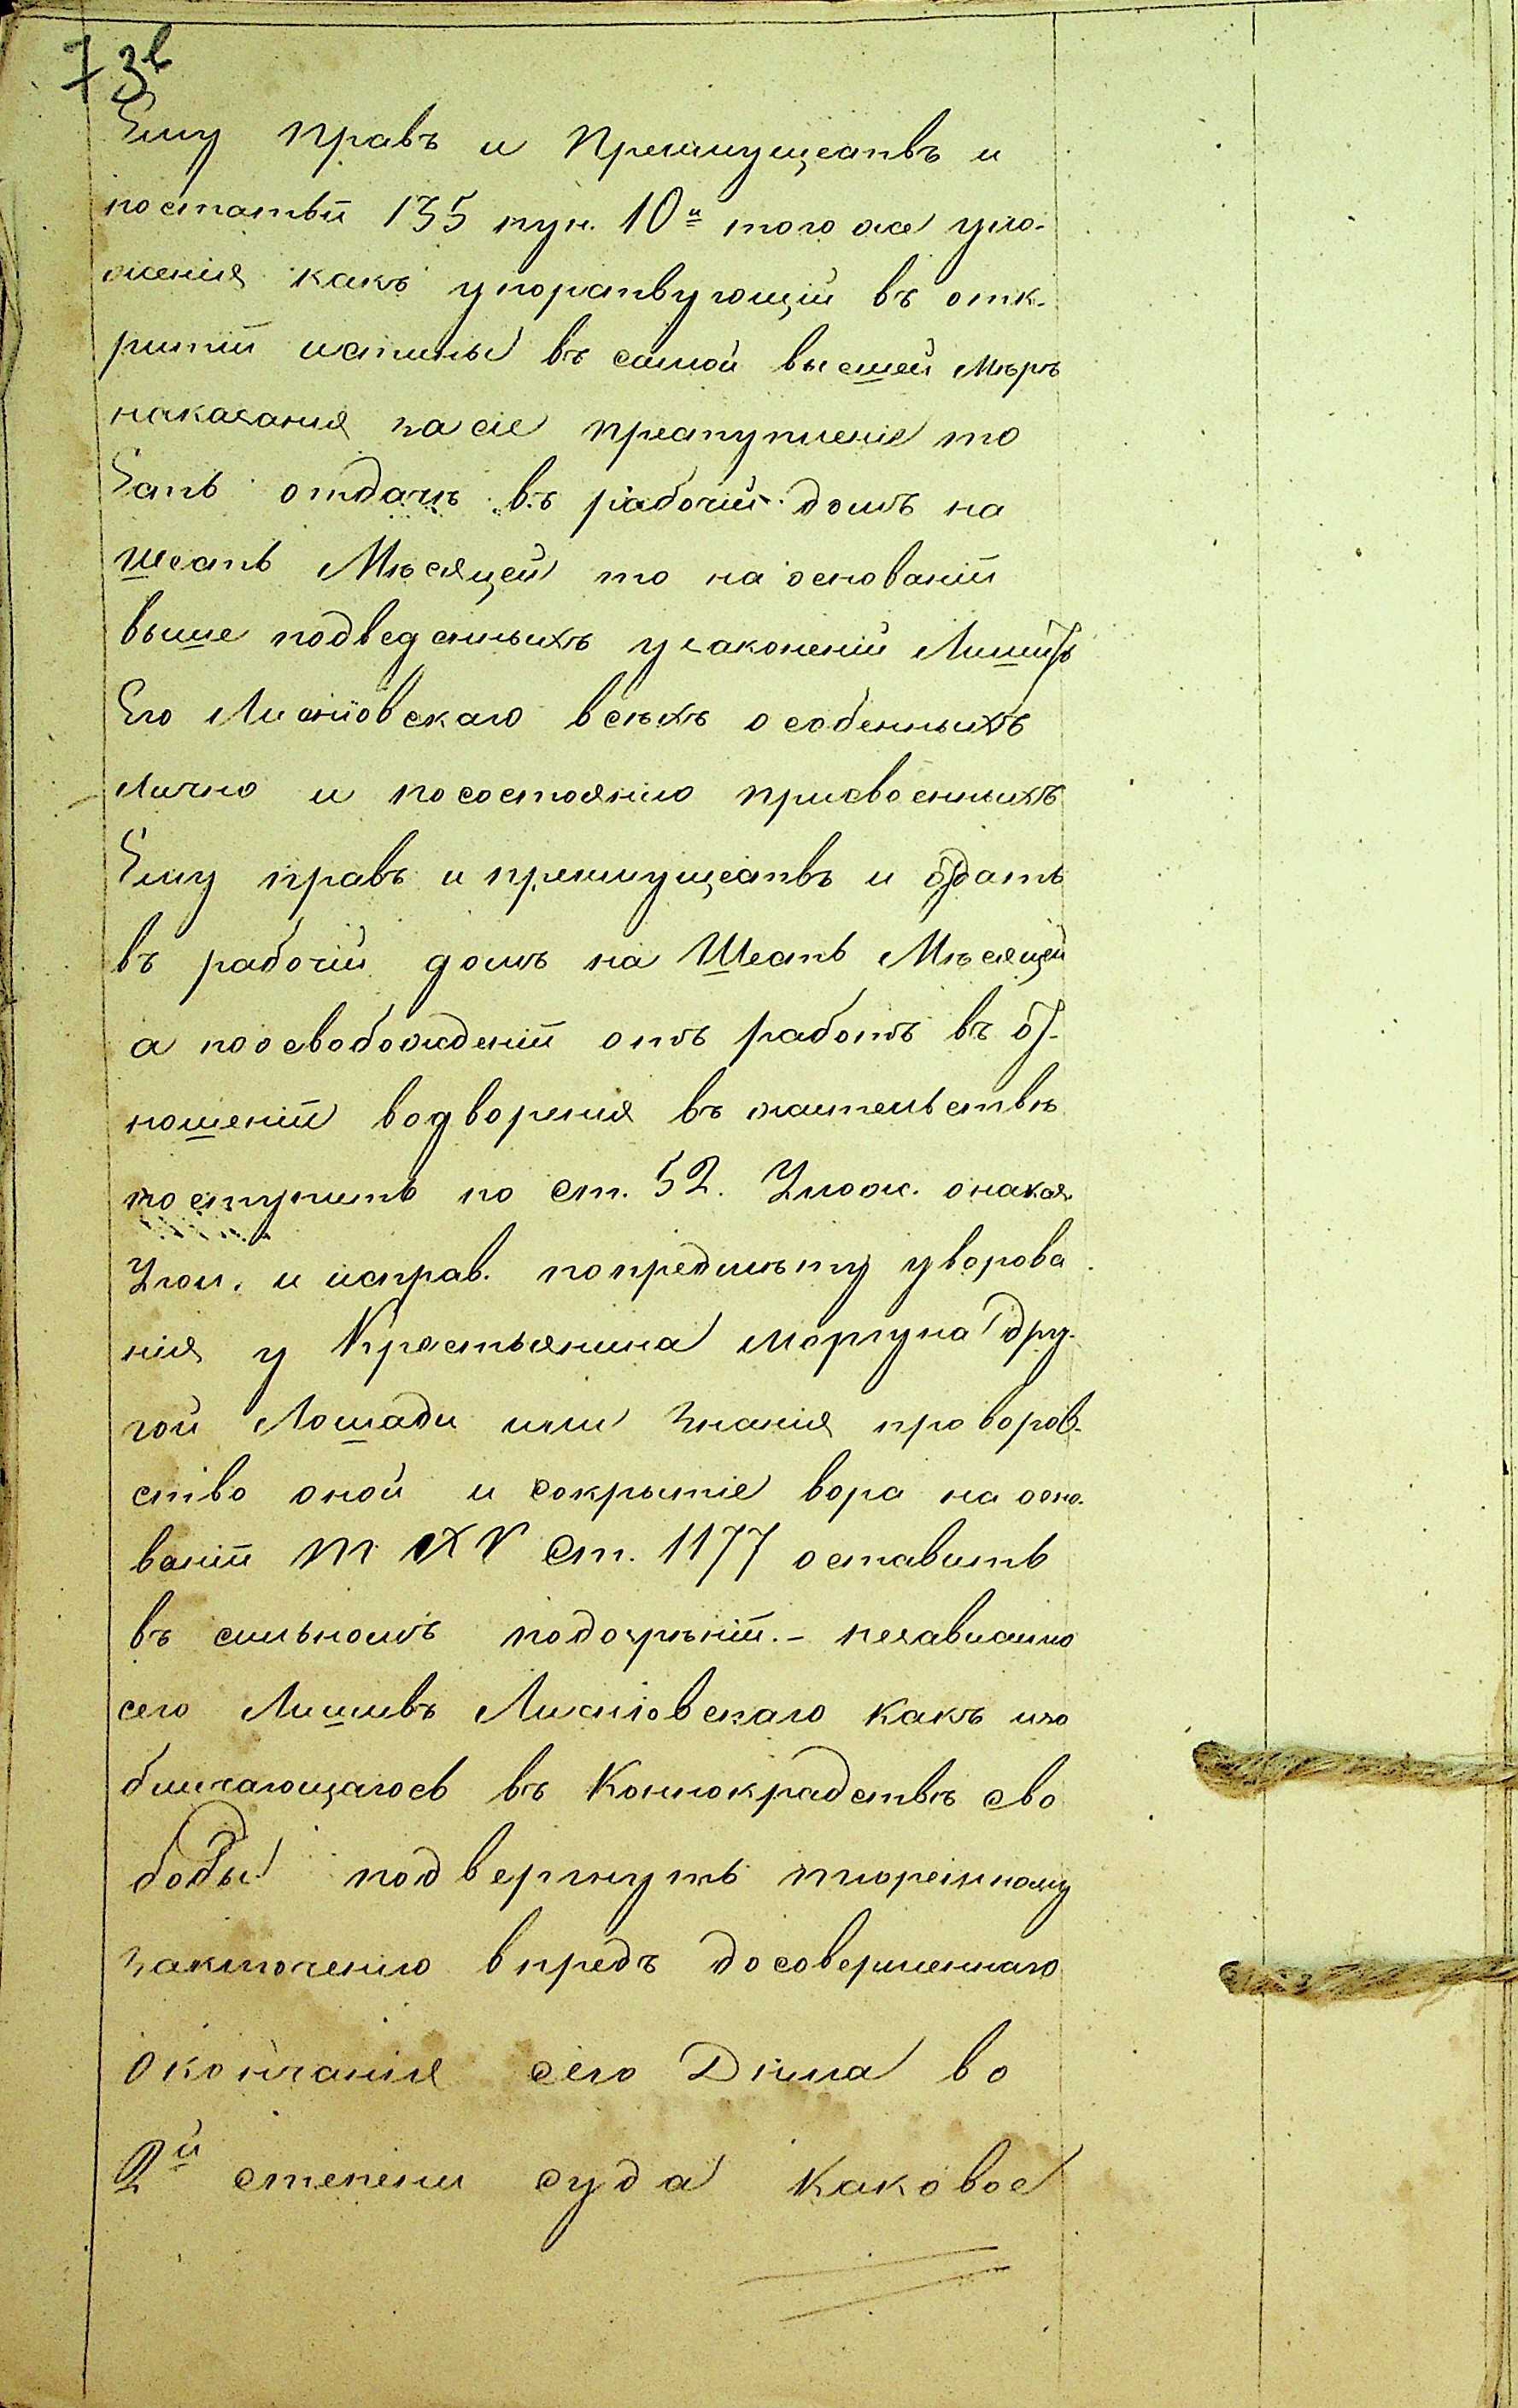 73в
Ему правъ и Преимуществъ и
постатьи 135 пун. 10й того же уло-
женія какъ упорствующій въ отк-
рытіи истины въ самой высшей мѣрѣ
наказанія засіе преступленіе то
Есть отдачѣ въ рабочій домъ на
шесть Мѣсяцей то на основаніи
выше подведенныхъ узаконеній Лишить
Его Лисновскаго всѣхъ особенныхъ
лично и посостоянію присвоенныхъ
Ему правъ и преимуществъ и отдать
въ рабочій домъ на Шесть Мѣсяцей
а поосвобожденіи отъ работъ въ от-
ношеніи водворенія въ жительствѣ
поступить по ст. 52. Улож. онаказ.
Угол. и исправ. попредмѣту уворова
нія у Крестьянина Моргуна дру-
гой Лошади или знанія проворов-
ство оной и сокрытіе вора на осно-
ваніи т XV ст. 1177 оставить
въ сильномъ подозрѣніи. - независимо
сего Лишивъ Лисновскаго какъ изо
бличающагось въ Конокрадствѣ сво
боды подвергнуть тюремному
заключенію впредъ досовершеннаго
окончанія сего Дѣла во
2й степени суда каковое